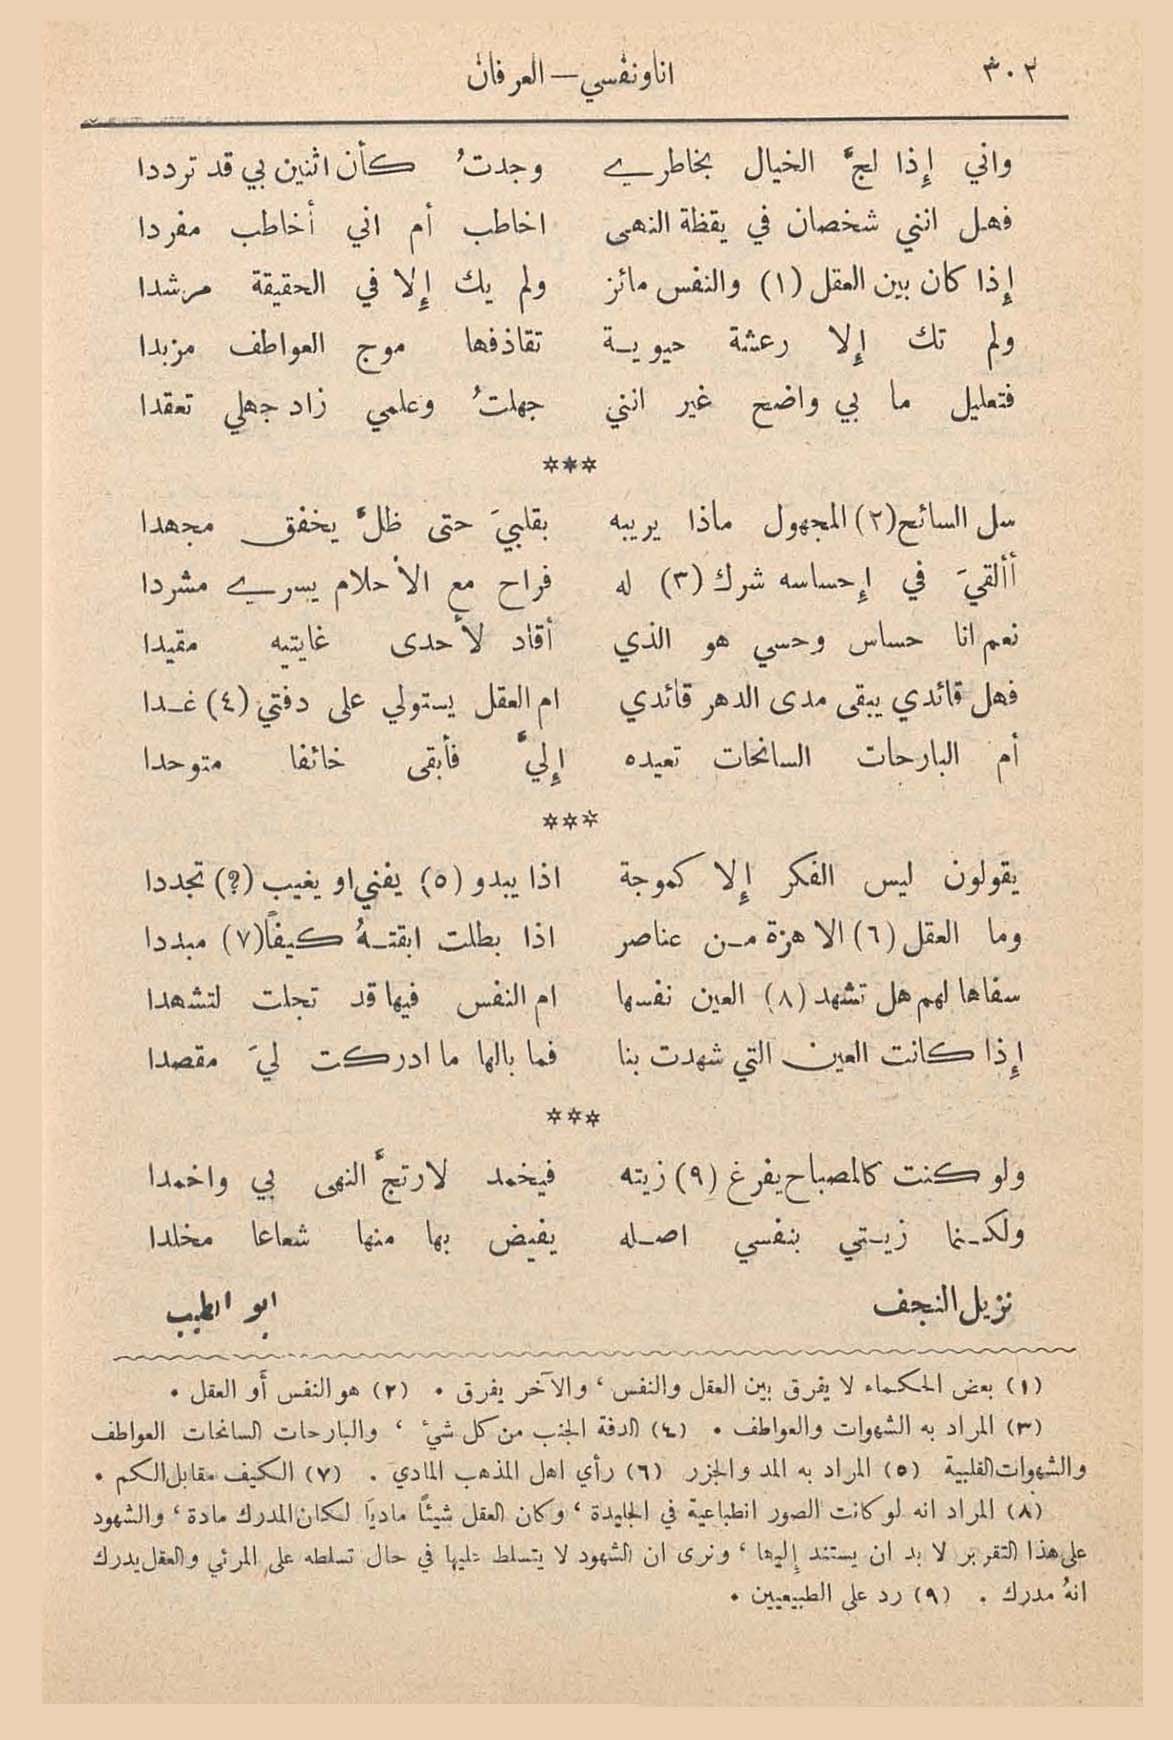 ٣٠٢ اناونفسي — العرفان
واني إذا لجَّ الخيال بخاطري وجدتُ كأن اثنين بي قد ترددا
فهل انني شخصان في يقظة النهى اخاطب أم اني أخاطب مفردا
إذا كان بين العقل (١) والنفس مائز ولم يك إلا في الحقيقة مرشدا
ولم تك إلا رعشة حيوية تقاذفها موج العواطف مزبدا
فتعليل ما بي واضح غير انني جهلتُ وعلمي زاد جهلي تعقدا
***
سل السائح (٢) المجهول ماذا يريبه بقلبيَ حتى ظلَّ يخفق مجهدا
أألقيَ في إحساسه شرك (٣) له فراح مع الأحلام يسري مشردا
نعم انا حساس وحسي هو الذي أقاد لأحدى غايتيه مقيدا
فهل قائدي يبقى مدى الدهر قائدي ام العقل يستولي على دفتي (٤) غدا
أم البارحات السانحات تعيده إليَّ فأبقى خائفا متوحدا
***
يقولون ليس الفكر إلا كموجة اذا يبدو (٥) يفني او يغيب (؟) تجددا
وما العقل (٦) الا هزة من عناصر اذا بطلت ابقتهُ كيفاً (٧) مبددا
سفاها لهم هل تشهد (٨) العين نفسها ام النفس فيها قد تجلت لتشهدا
إذا كانت العين التي شهدت بنا فما بالها ما ادركت ليَ مقصدا
***
ولو كنت كالمصباح يفرغ (٩) زيته فيخمد لارتجَّ النهى بي واخمدا
ولكنما زيتي بنفسي اصله يفيض بها منها شعاعا مخلدا
نزيل النجف ابو الطيب
(١) بعض الحكماء لا يفرق بين العقل والنفس ، والآخر يفرق . (٢) هو النفس أو العقل .
(٣) المراد به الشهوات والعواطف . (٤) الدفة الجنب من كل شيء ، والبارحات السانحات العواطف
والشهوات القلبية (٥) المراد به المد والجزر (٦) رأي اهل المذهب المادي . (٧) الكيف مقابل الكم .
(٨) المراد انه لو كانت الصور انطباعية في الجليدة ، وكان العقل شيئاً مادياً لكان المدرك مادة ، والشهود
على هذا التقرير لا بد ان يستند إليها ، ونرى ان الشهود لا يتسلط عليها في حال تسلطه على المرئي والعقل يدرك
انهُ مدرك . (٩) رد على الطبيعيين .